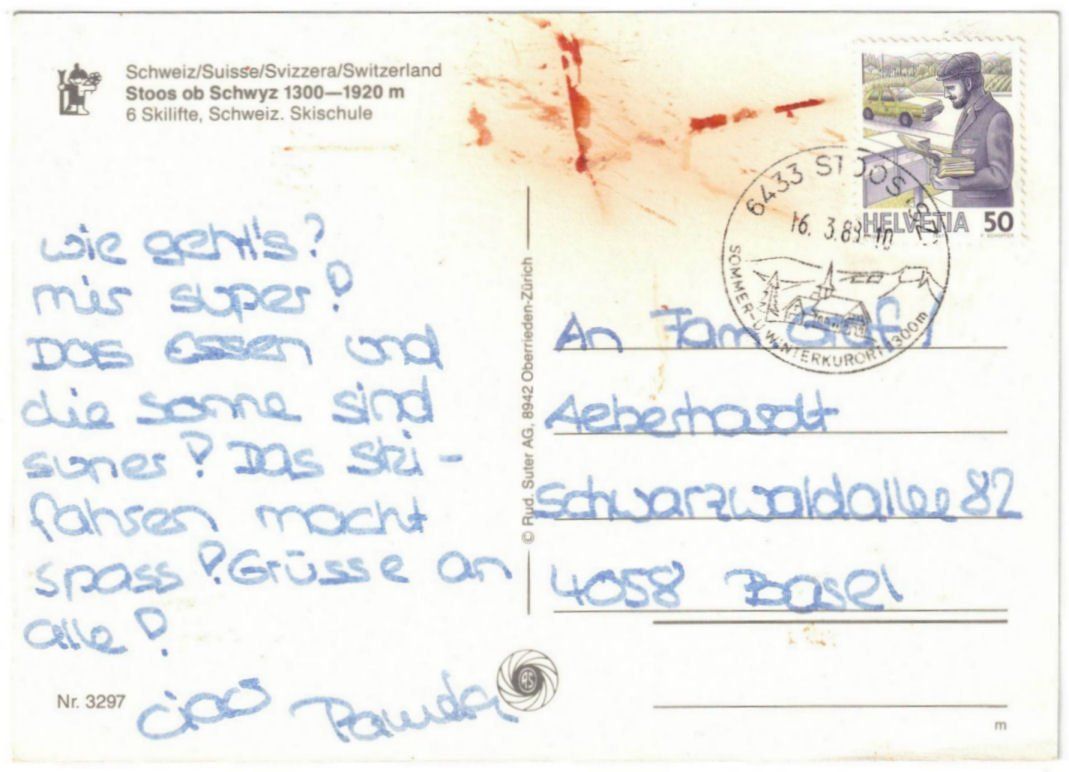 Schweiz/Suisse/Svizzera/Switzerland
Stoos ob Schwyz 1300—1920 m
6 Skilifte, Schweiz. Skischule
wie geht's?
mir super!
Das Essen und
die sonne sind
super! Das Ski-
fahren macht
spass! Grüsse an
alle!
ciao
Nr. 3297
© Rud. Suter AG, 8942 Oberrieden-Zürich
RS
HELVETIA 50
6433 STOOS SZ
16. 3.89-10
SOMMER-U WINTERKURORT 1300m
An Fam
Aeberhardt
Schwarzwaldallee 82
4058 Basel
m